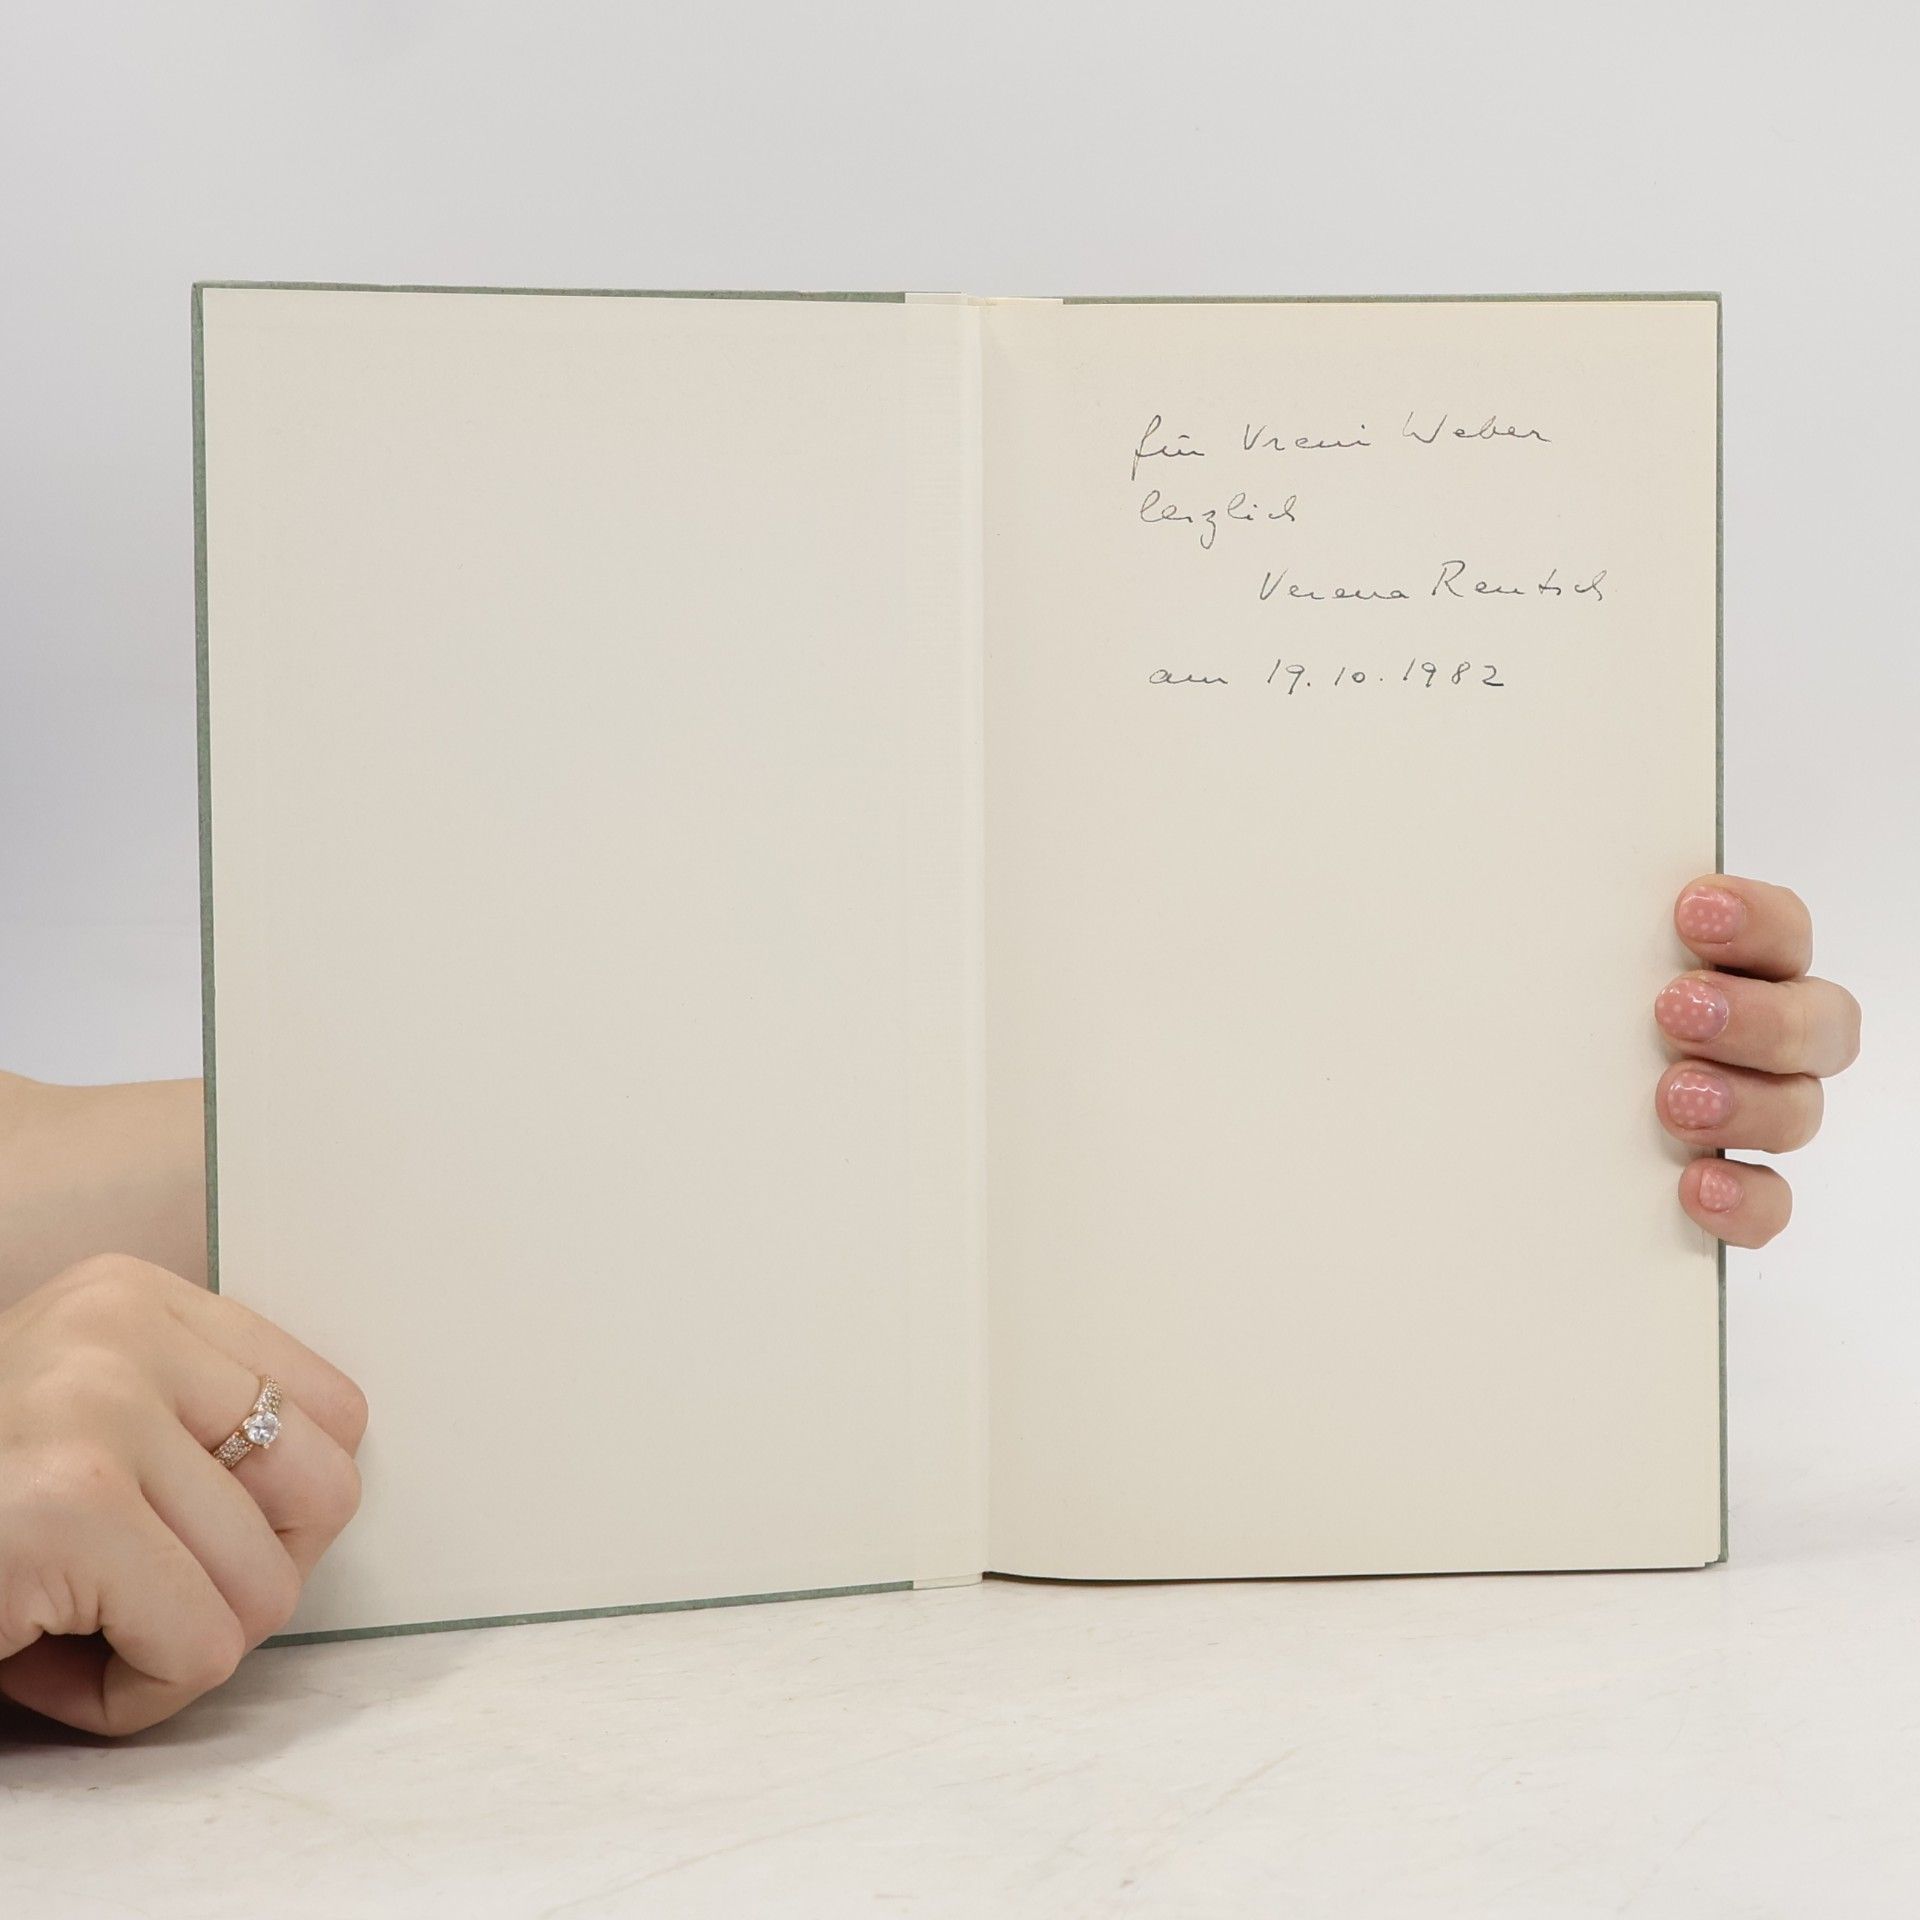 für Vreni Weber
herzlich
Verena Rentsch
am 19.10.1982